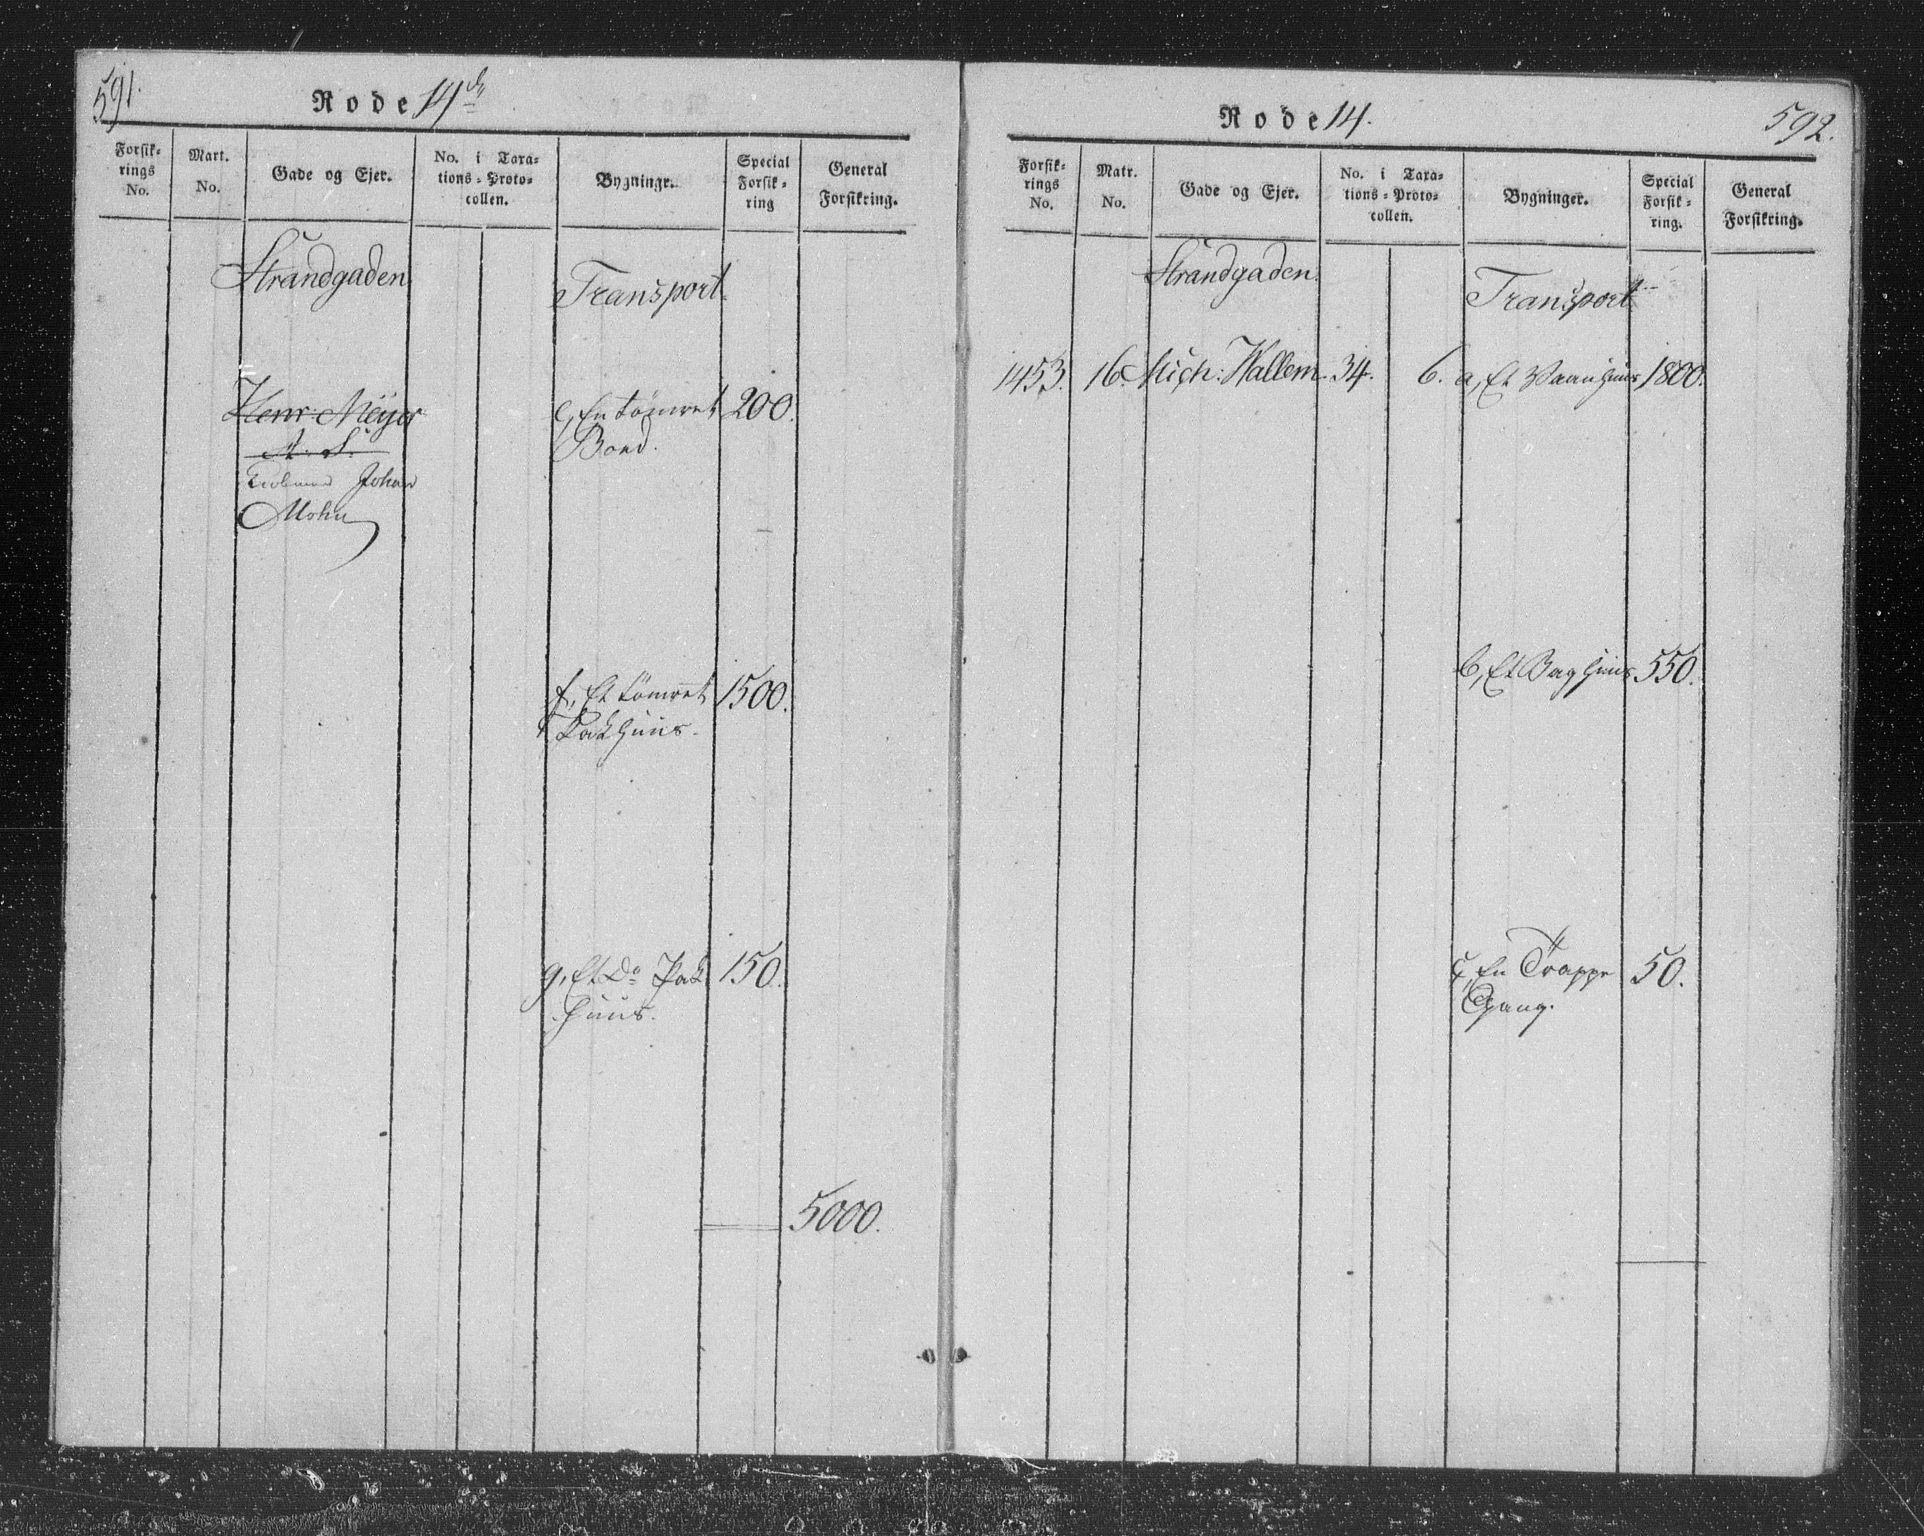 591.
Rode 14de
Forsik-
rings
No.
Mart.
No.
Gade og Ejer.
No. i Taxa-
tions-Proto-
collen.
Bygningr.
Special
Forsik-
ring
General
Forsikring.
Strandgaden
Transport
Henr Meyer
A. S.
Johan
Mohn
e, En tømret 200.
Boed.
f, Et tømret 1500.
Pakhuus.
g, Et Do Pak 150.
huus.
5000.
592.
Rode 14.
Forsik-
rings
No.
Matr.
No.
Gade og Ejer.
No. i Taxa-
tions-Proto-
collen.
Bygninger.
Special
Forsik-
ring.
General
Forsikring.
Strandgaden.
Transport
1453. 16. Mich: Wallem. 34. 6. a, Et Vaanhuus 1800.
b, Et Baghuus 550.
c, En Trappe 50.
Gang.